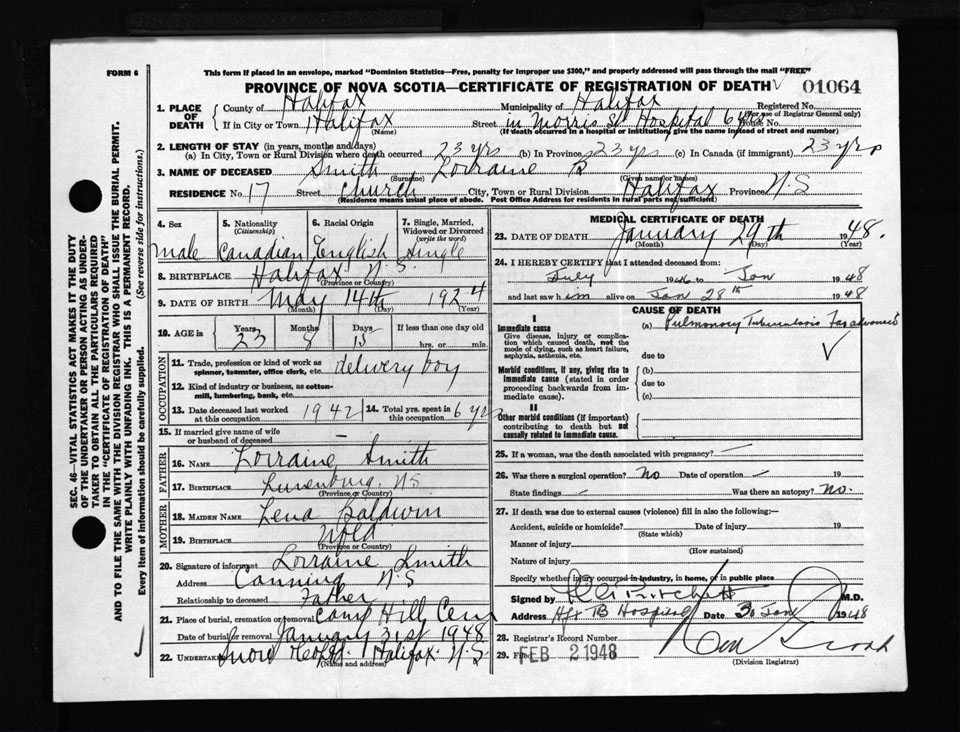 FORM 6
This form if placed in an envelope, marked "Dominion Statistics—Free, penalty for improper use $300," and properly addressed will pass through the mail "FREE"
PROVINCE OF NOVA SCOTIA—CERTIFICATE OF REGISTRATION OF DEATH 01064
1. PLACE OF DEATH County of Halifax Municipality of Halifax Registered No.
(For use of Registrar General only)
If in City or Town Halifax Street in Morris St Hospital House No.
(Name) (If death occurred in a hospital or institution, give the name instead of street and number)
2. LENGTH OF STAY (in years, months and days)
(a) In City, Town or Rural Division where death occurred 23 yrs (b) In Province 23 yrs (c) In Canada (if immigrant) 23 yrs
3. NAME OF DECEASED Smith Lorraine B
(Surname) (Given name or names)
RESIDENCE No. 17 Street Church City, Town or Rural Division Halifax Province N.S
(Residence means usual place of abode. Post Office Address for residents in rural parts not sufficient)
4. Sex 5. Nationality (Citizenship) 6. Racial Origin 7. Single, Married, Widowed or Divorced (write the word)
male Canadian English Single
8. BIRTHPLACE Halifax N.S.
(Province or Country)
9. DATE OF BIRTH May 14th 1924
(Month) (Day) (Year)
10. AGE in Years Months Days If less than one day old
23 8 15 hrs. or min.
OCCUPATION
11. Trade, profession or kind of work as spinner, teamster, office clerk, etc. delivery boy
12. Kind of industry or business, as cotton-mill, lumbering, bank, etc.
13. Date deceased last worked at this occupation 1942 14. Total yrs. spent in this occupation 6 yrs
15. If married give name of wife or husband of deceased —
FATHER
16. NAME Lorraine Smith
17. BIRTHPLACE Lunenburg, N.S
(Province or Country)
MOTHER
18. MAIDEN NAME Lena Baldwin
19. BIRTHPLACE Nfld
(Province or Country)
20. Signature of informant Lorraine Smith
Address Canning N.S
Relationship to deceased Father
21. Place of burial, cremation or removal Camp Hill Cem
Date of burial or removal January 31st 1948
22. Undertaker Snow Halifax N.S.
(Name and address)
MEDICAL CERTIFICATE OF DEATH
23. DATE OF DEATH January 29th 1948.
(Month) (Day) (Year)
24. I HEREBY CERTIFY that I attended deceased from:
July 1946 to Jan 1948
and last saw him alive on Jan 28th 1948
CAUSE OF DEATH
I
Immediate cause (a) Pulmonary Tuberculosis Far advanced
Give disease, injury or complication which caused death, not the mode of dying, such as heart failure, asphyxia, asthenia, etc.
due to
Morbid conditions, if any, giving rise to immediate cause (stated in order proceeding backwards from immediate cause).
(b)
due to
(c)
II
Other morbid conditions (if important) contributing to death but not causally related to immediate cause.
25. If a woman, was the death associated with pregnancy? —
26. Was there a surgical operation? No Date of operation — 19
State findings — Was there an autopsy? No.
27. If death was due to external causes (violence) fill in also the following:—
Accident, suicide or homicide? Date of injury 19
(State which)
Manner of injury
(How sustained)
Nature of injury
Specify whether injury occurred in industry, in home, or in public place
Signed by M.D.
Address Hfx TB Hospital Date 30 Jan 1948
28. Registrar's Record Number
29. Filed FEB 2 1948
(Division Registrar)
SEC. 46—VITAL STATISTICS ACT MAKES IT THE DUTY
OF THE UNDERTAKER OR PERSON ACTING AS UNDER-
TAKER TO OBTAIN ALL THE PARTICULARS REQUIRED
IN THE "CERTIFICATE OF REGISTRATION OF DEATH"
AND TO FILE THE SAME WITH THE DIVISION REGISTRAR WHO SHALL ISSUE THE BURIAL PERMIT.
WRITE PLAINLY WITH UNFADING INK. THIS IS A PERMANENT RECORD.
Every item of information should be carefully supplied. (See reverse side for instructions.)